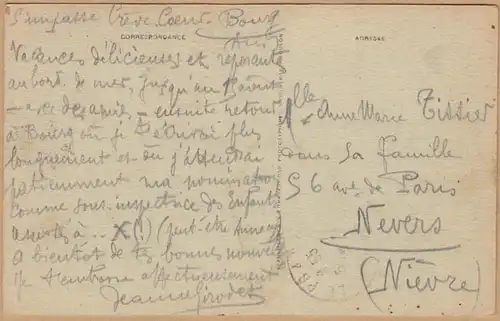 5 impasse Crève-Coeur - Bourg
Ain
CORRESPONDANCE
ADRESSE
Vacances délicieuses et reposantes
au bord de mer, jusqu'au
avec des amis, - ensuite retour
à Bourg où je t'écrirai plus
longuement et où j'attendrai
patiemment ma nomination
comme sous-inspectrice des Enfants
assistés à .. X (!) (peut-être Annecy
A bientôt de tes bonnes nouvelles
Je t'embrasse affectueusement
Jeanne Girodet
Mlle Anne Marie Tissier
dans sa famille
56 ave de Paris
Nevers
(Nièvre)